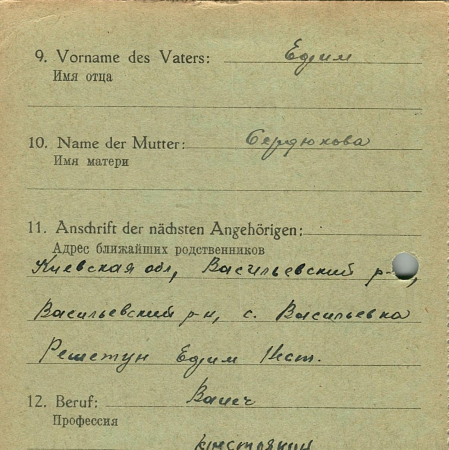 9. Vorname des Vaters: Ефим
Имя отца
10. Name der Mutter: Сердюкова
Имя матери
11. Anschrift der nächsten Angehörigen:
Адрес ближайших родственников
Киевская обл, Васильевский р-н,
Васильевский р-н, с. Васильевка
Решетун Ефим Нест.
12. Beruf:
Профессия